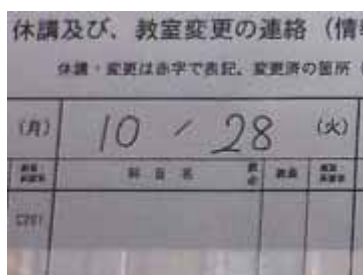 休講及び、教室変更の連絡（情
休講・変更は赤字で表記。変更済の箇所（
（月） 10／28 （火）
科目名 教員
C201